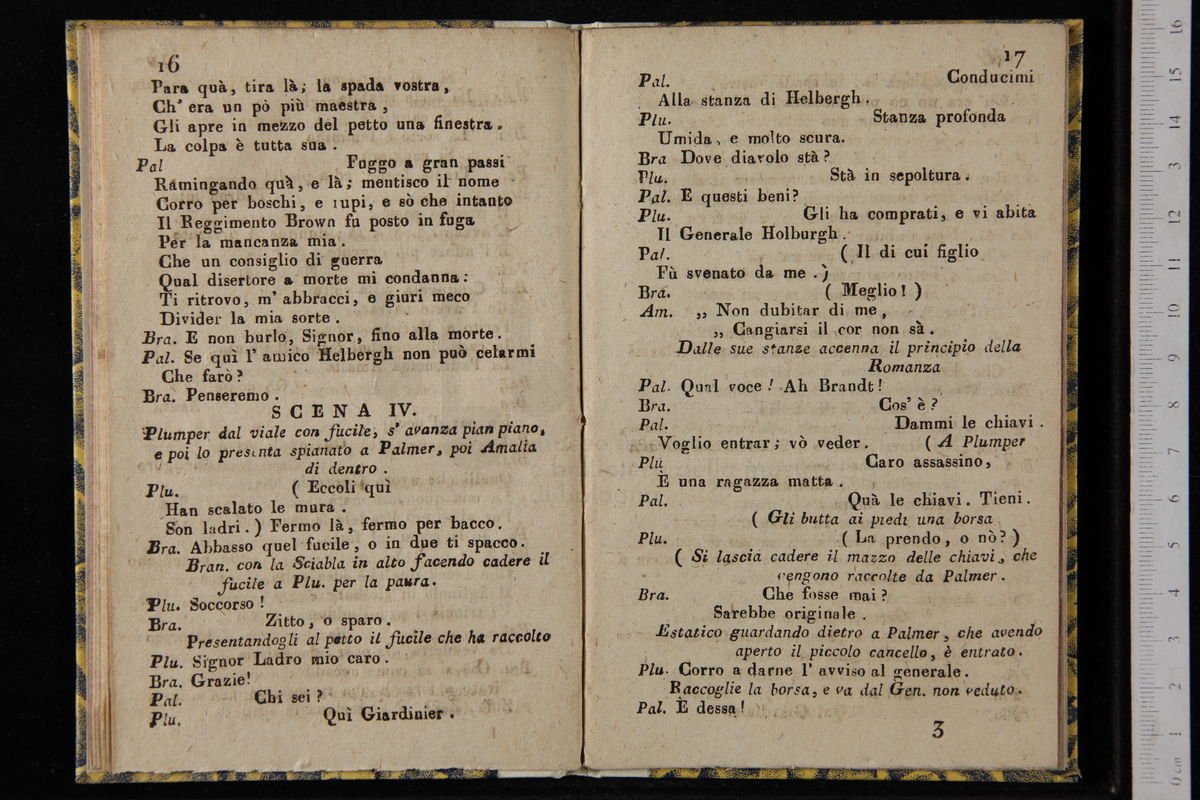 16
Para quà, tira là; la spada vostra,
Ch' era un pò più maestra,
Gli apre in mezzo del petto una finestra.
La colpa è tutta sua.
Pal Fuggo a gran passi
Ramingando quà, e là; mentisco il nome
Corro per boschi, e rupi, e sò che intanto
Il Reggimento Brown fu posto in fuga
Per la mancanza mia.
Che un consiglio di guerra
Qual disertore a morte mi condanna:
Ti ritrovo, m' abbracci, e giuri meco
Divider la mia sorte.
Bra. E non burlo, Signor, fino alla morte.
Pal. Se quì l' amico Helbergh non può celarmi
Che farò?
Bra. Penseremo.
SCENA IV.
Plumper dal viale con fucile, s' avanza pian piano,
e poi lo presenta spianato a Palmer, poi Amalia
di dentro.
Plu. ( Eccoli quì
Han scalato le mura.
Son ladri. ) Fermo là, fermo per bacco.
Bra. Abbasso quel fucile, o in due ti spacco.
Bran. con la Sciabla in alto facendo cadere il
fucile a Plu. per la paura.
Plu. Soccorso!
Bra. Zitto, o sparo.
Presentandogli al petto il fucile che ha raccolto
Plu. Signor Ladro mio caro.
Bra. Grazie!
Pal. Chi sei?
Plu. Quì Giardinier.
17
Pal. Conducimi
Alla stanza di Helbergh.
Plu. Stanza profonda
Umida, e molto scura.
Bra Dove diavolo stà?
Plu. Stà in sepoltura.
Pal. E questi beni?
Plu. Gli ha comprati, e vi abita
Il Generale Holburgh.
Pal. ( Il di cui figlio
Fù svenato da me. )
Bra. ( Meglio! )
Am. ,, Non dubitar di me,
,, Cangiarsi il cor non sà.
Dalle sue stanze accenna il principio della
Romanza
Pal. Qual voce! Ah Brandt!
Bra. Cos' è?
Pal. Dammi le chiavi.
Voglio entrar; vò veder. ( A Plumper
Plu Caro assassino,
È una ragazza matta.
Pal. Quà le chiavi. Tieni.
( Gli butta ai piedi una borsa
Plu. ( La prendo, o nò? )
( Si lascia cadere il mazzo delle chiavi, che
vengono raccolte da Palmer.
Bra. Che fosse mai?
Sarebbe originale.
Estatico guardando dietro a Palmer, che avendo
aperto il piccolo cancello, è entrato.
Plu. Corro a darne l' avviso al generale.
Raccoglie la borsa, e va dal Gen. non veduto.
Pal. È dessa!
3
0 cm 1 2 3 4 5 6 7 8 9 10 11 12 13 14 15 16